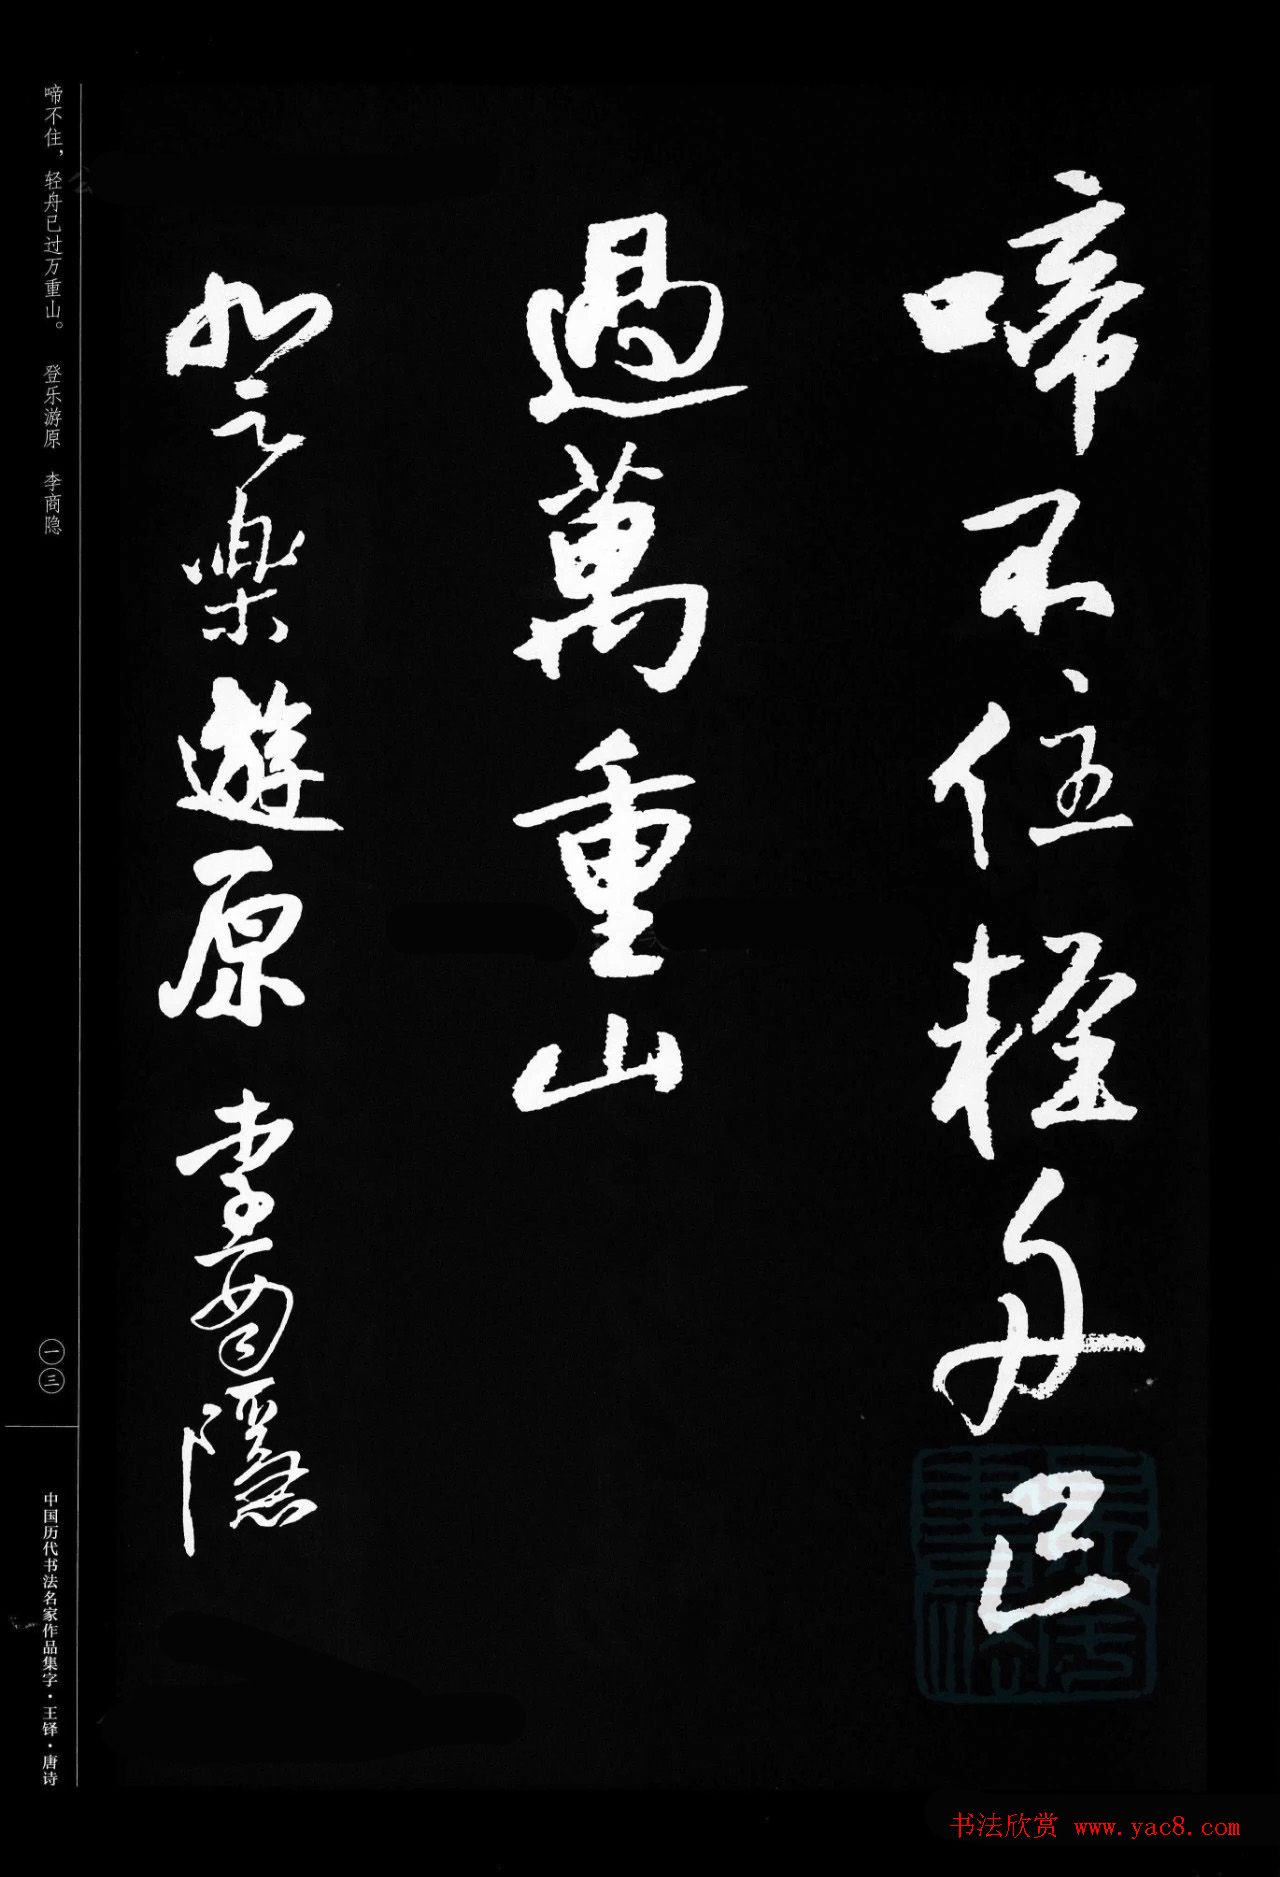 啼不住輕舟已
過萬重山
登樂遊原 李商隱
啼不住，轻舟已过万重山。 登乐游原 李商隐
一三
中国历代书法名家作品集字·王铎·唐诗
书法欣赏 www.yac8.com